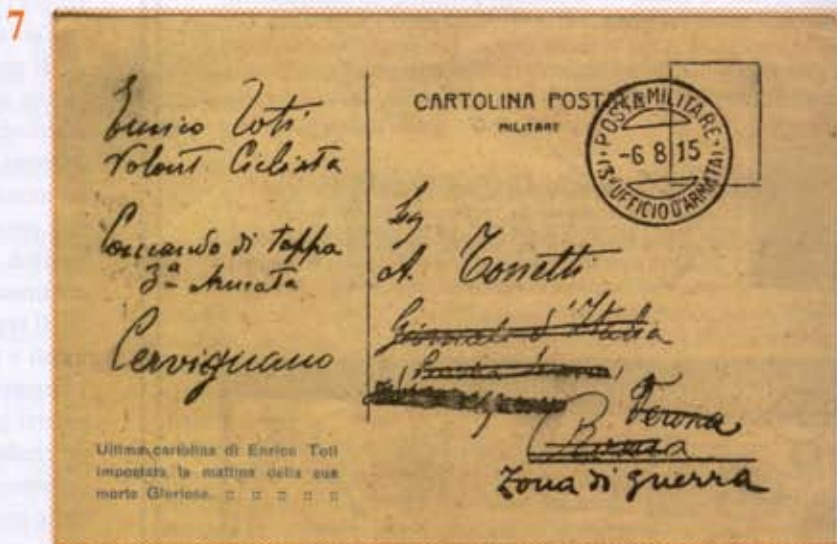 7
Enrico Toti
Volont. Ciclista
Comando di Tappa
3ª Armata
Cervignano
Ultima cartolina di Enrico Toti
impostata la mattina della sua
morte Gloriosa.
CARTOLINA POSTALE
MILITARE
POSTA MILITARE
-6 8 15
(3ª UFFICIO D'ARMATA)
Sig
A. Tonetti
Giornale d'Italia
Verona
Roma
Zona di guerra